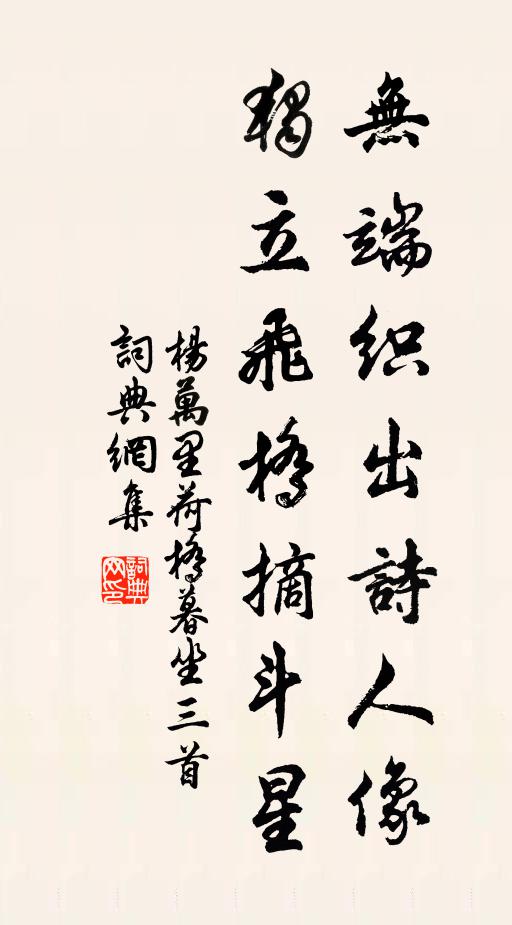 無端织出詩人像
獨立飛橋摘斗星
楊萬里荷橋暮坐三首
詞典網集
詞典
网印